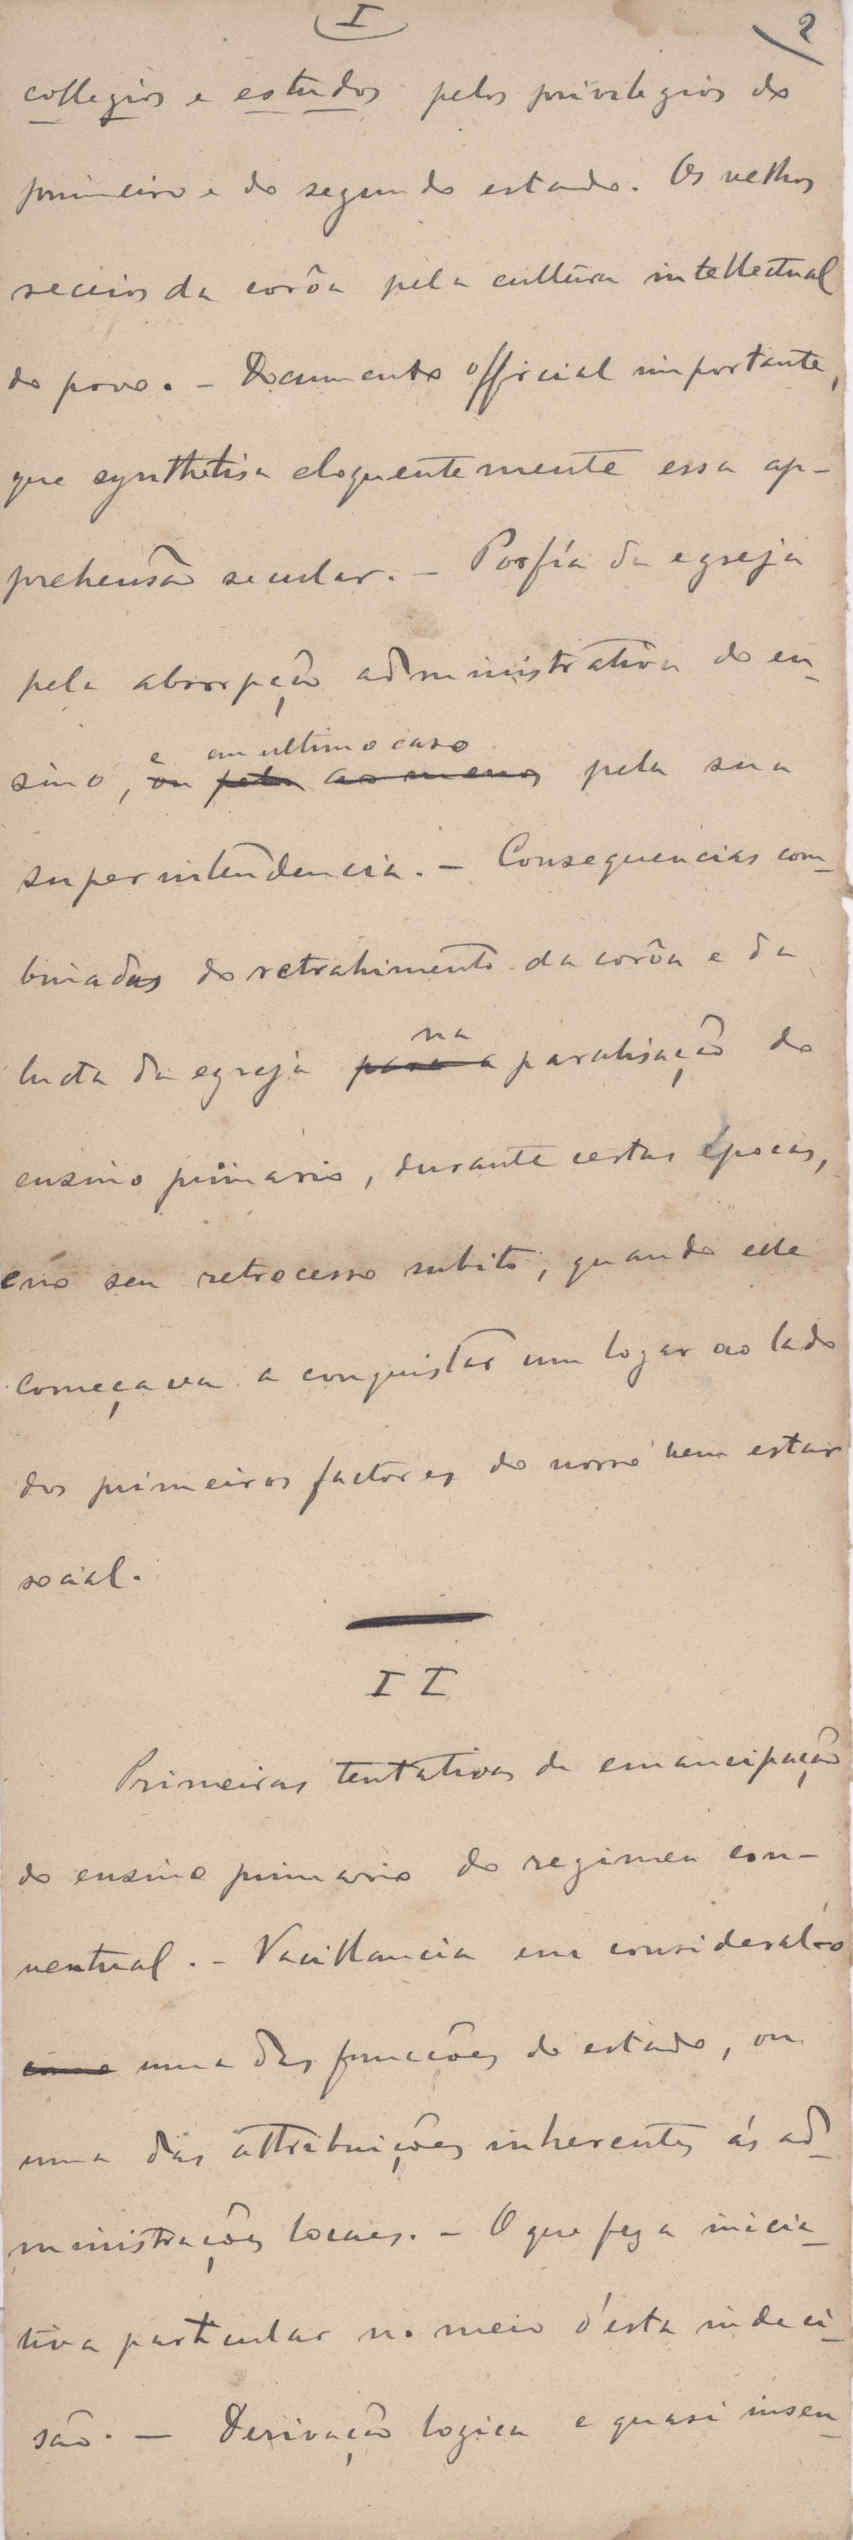 I
2
collegios e estudos pelos privilegios do
primeiro e do segundo estado. Os velhos
receios da corôa pela cultura intellectual
do povo. - Documento official importante,
que synthetisa eloquentemente essa ap-
prehensão secular. - Porfía da egreja
pela absorpção administrativa do en-
e em ultimo caso
sino, ou pelo ao menos pela sua
superintendencia. - Consequencias com-
binadas do retrahimento da corôa e da
na
lucta da egreja para a paralisação do
ensino primario, durante certas épocas,
e no seu retrocesso subito, quando elle
começava a conquistar um logar ao lado
dos primeiros factores do nosso bem estar
social.
II
Primeiras tentativas de emancipação
do ensino primario do regimen con-
ventual. - Vacillancia em consideral-o
como uma das funcções do estado, ou
uma das attribuições inherentes ás ad-
ministrações locaes. - O que fez a inicia-
tiva particular no meio d'esta indeci-
são. - Derivação logica e quasi insen-